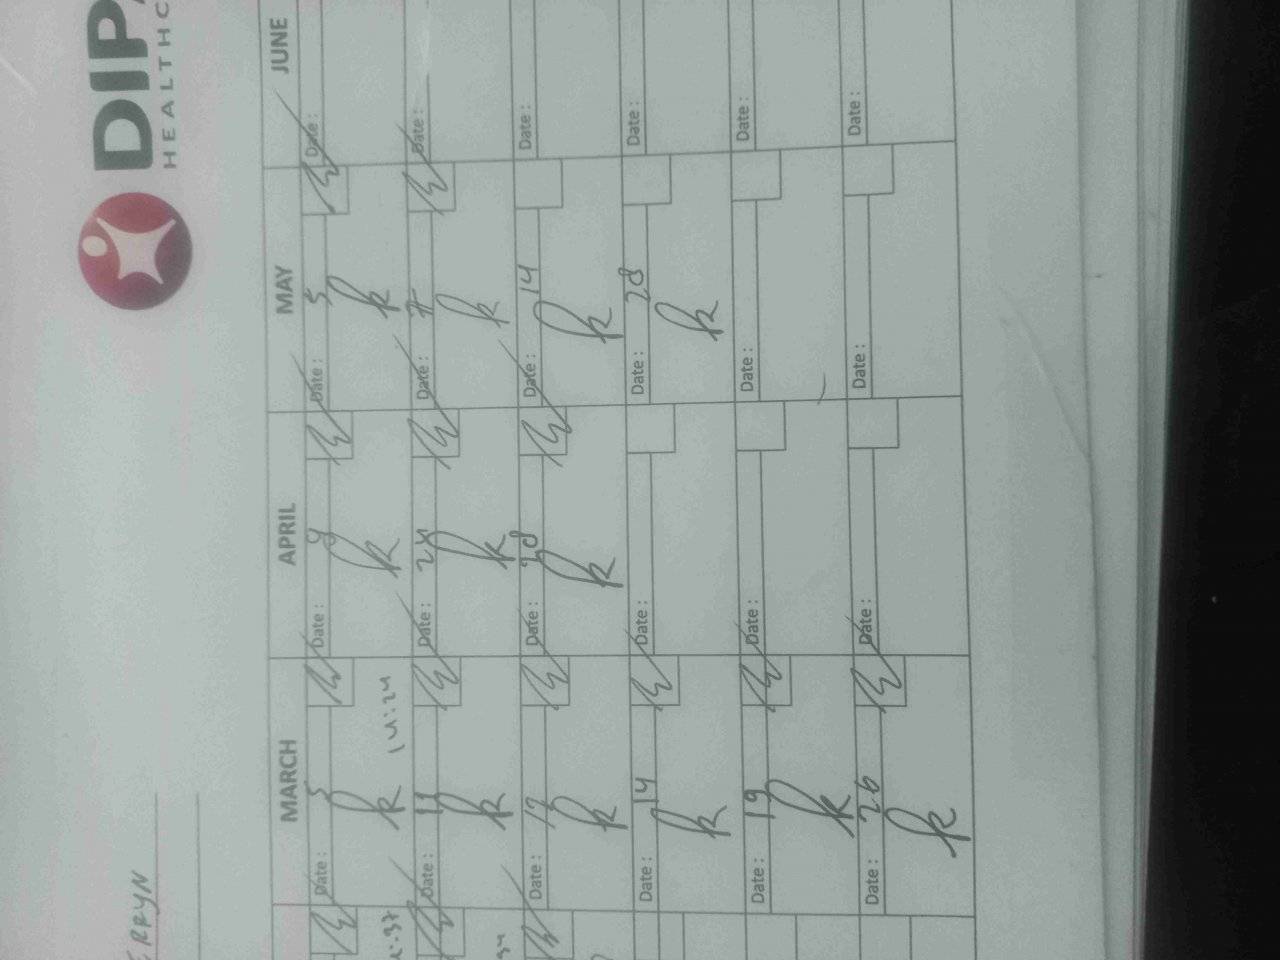 DIP
HEALTHC
ERRYN
MARCH APRIL MAY JUNE
Date: 5 Date: 9 Date: 5 Date:
14:24
Date: 11 Date: 24 Date: 7 Date:
Date: 12 Date: 28 Date: 14 Date:
Date: 14 Date: Date: 28 Date:
Date: 19 Date: Date: Date:
Date: 26 Date: Date: Date: